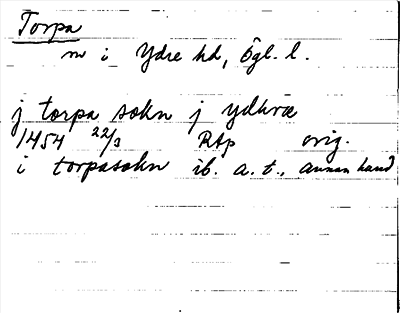 Torpa
sn i Ydre hd, Ögl. l.
j torpa sokn j ydhræ
1454 22/3 RAp orig.
i torpasokn ib. a. t., annan hand